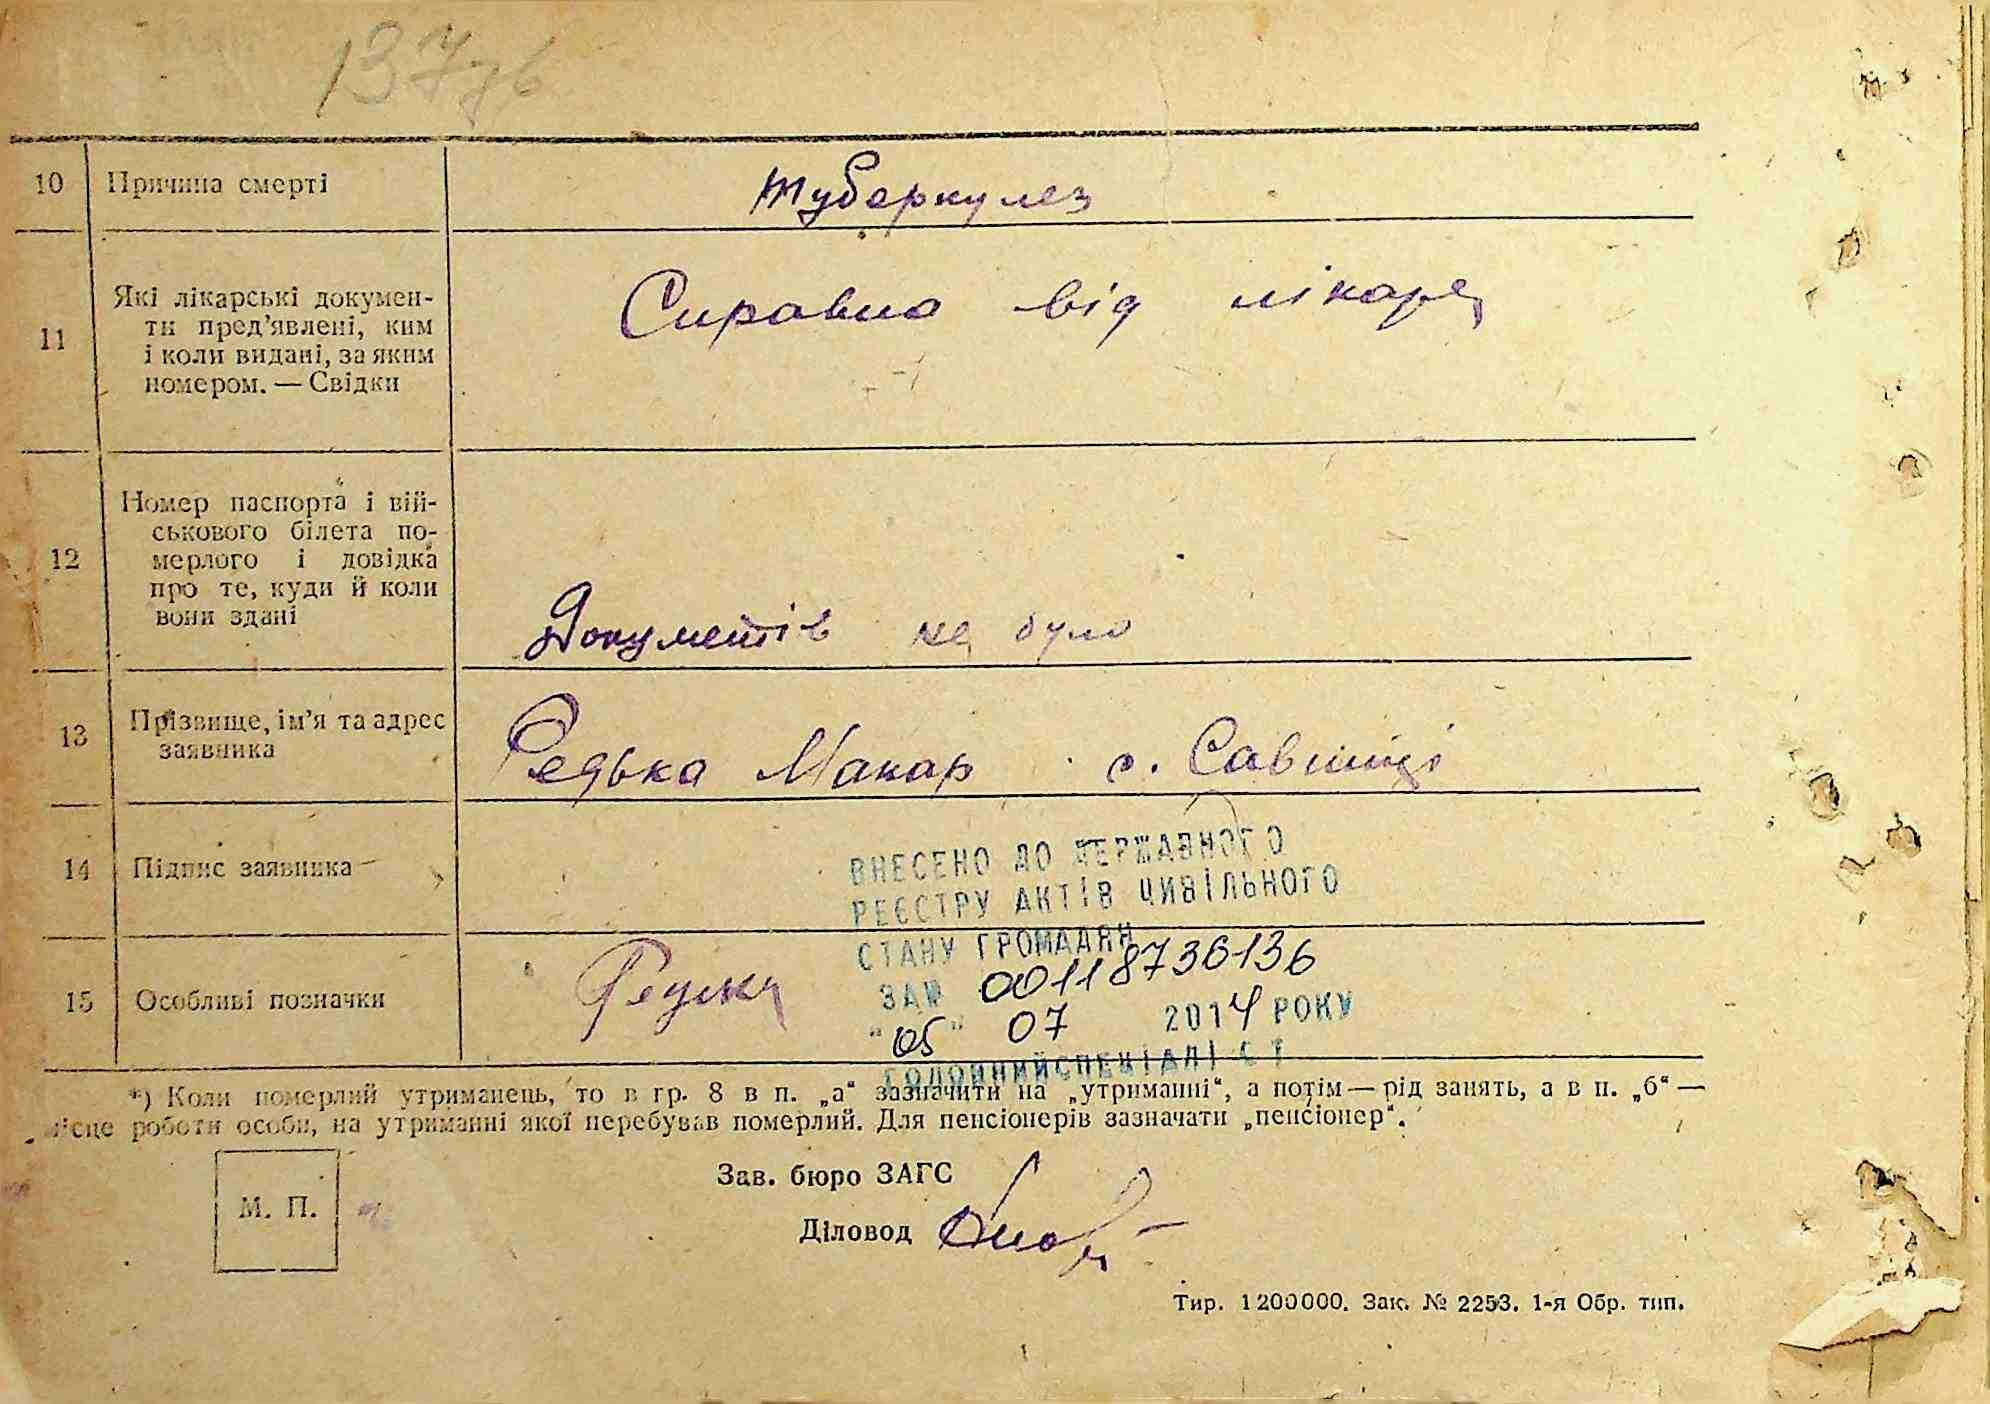 137зв
10 Причина смерті туберкулез
11 Які лікарські докумен-
ти пред’явлені, ким
і коли видані, за яким
номером. — Свідки
Справка від лікаря
12 Номер паспорта і вій-
ськового білета по-
мерлого і довідка
про те, куди й коли
вони здані
Документів не було
13 Прізвище, ім’я та адрес
заявника
Редька Макар с. Савинці
14 Підпис заявника
ВНЕСЕНО ДО ДЕРЖАВНОГО
РЕЄСТРУ АКТІВ ЦИВІЛЬНОГО
СТАНУ ГРОМАДЯН
15 Особливі позначки
ЗА№ 00118736136
"05" 07 2014 РОКУ
ГОЛОВНИЙ СПЕЦІАЛІСТ
*) Коли померлий утриманець, то в гр. 8 в п. „а“ зазначити на „утриманні“, а потім — рід занять, а в п. „б“ —
місце роботи особи, на утриманні якої перебував померлий. Для пенсіонерів зазначати „пенсіонер“.
Зав. бюро ЗАГС
М. П.
Діловод
Тир. 1200000. Зак. № 2253. 1-я Обр. тип.